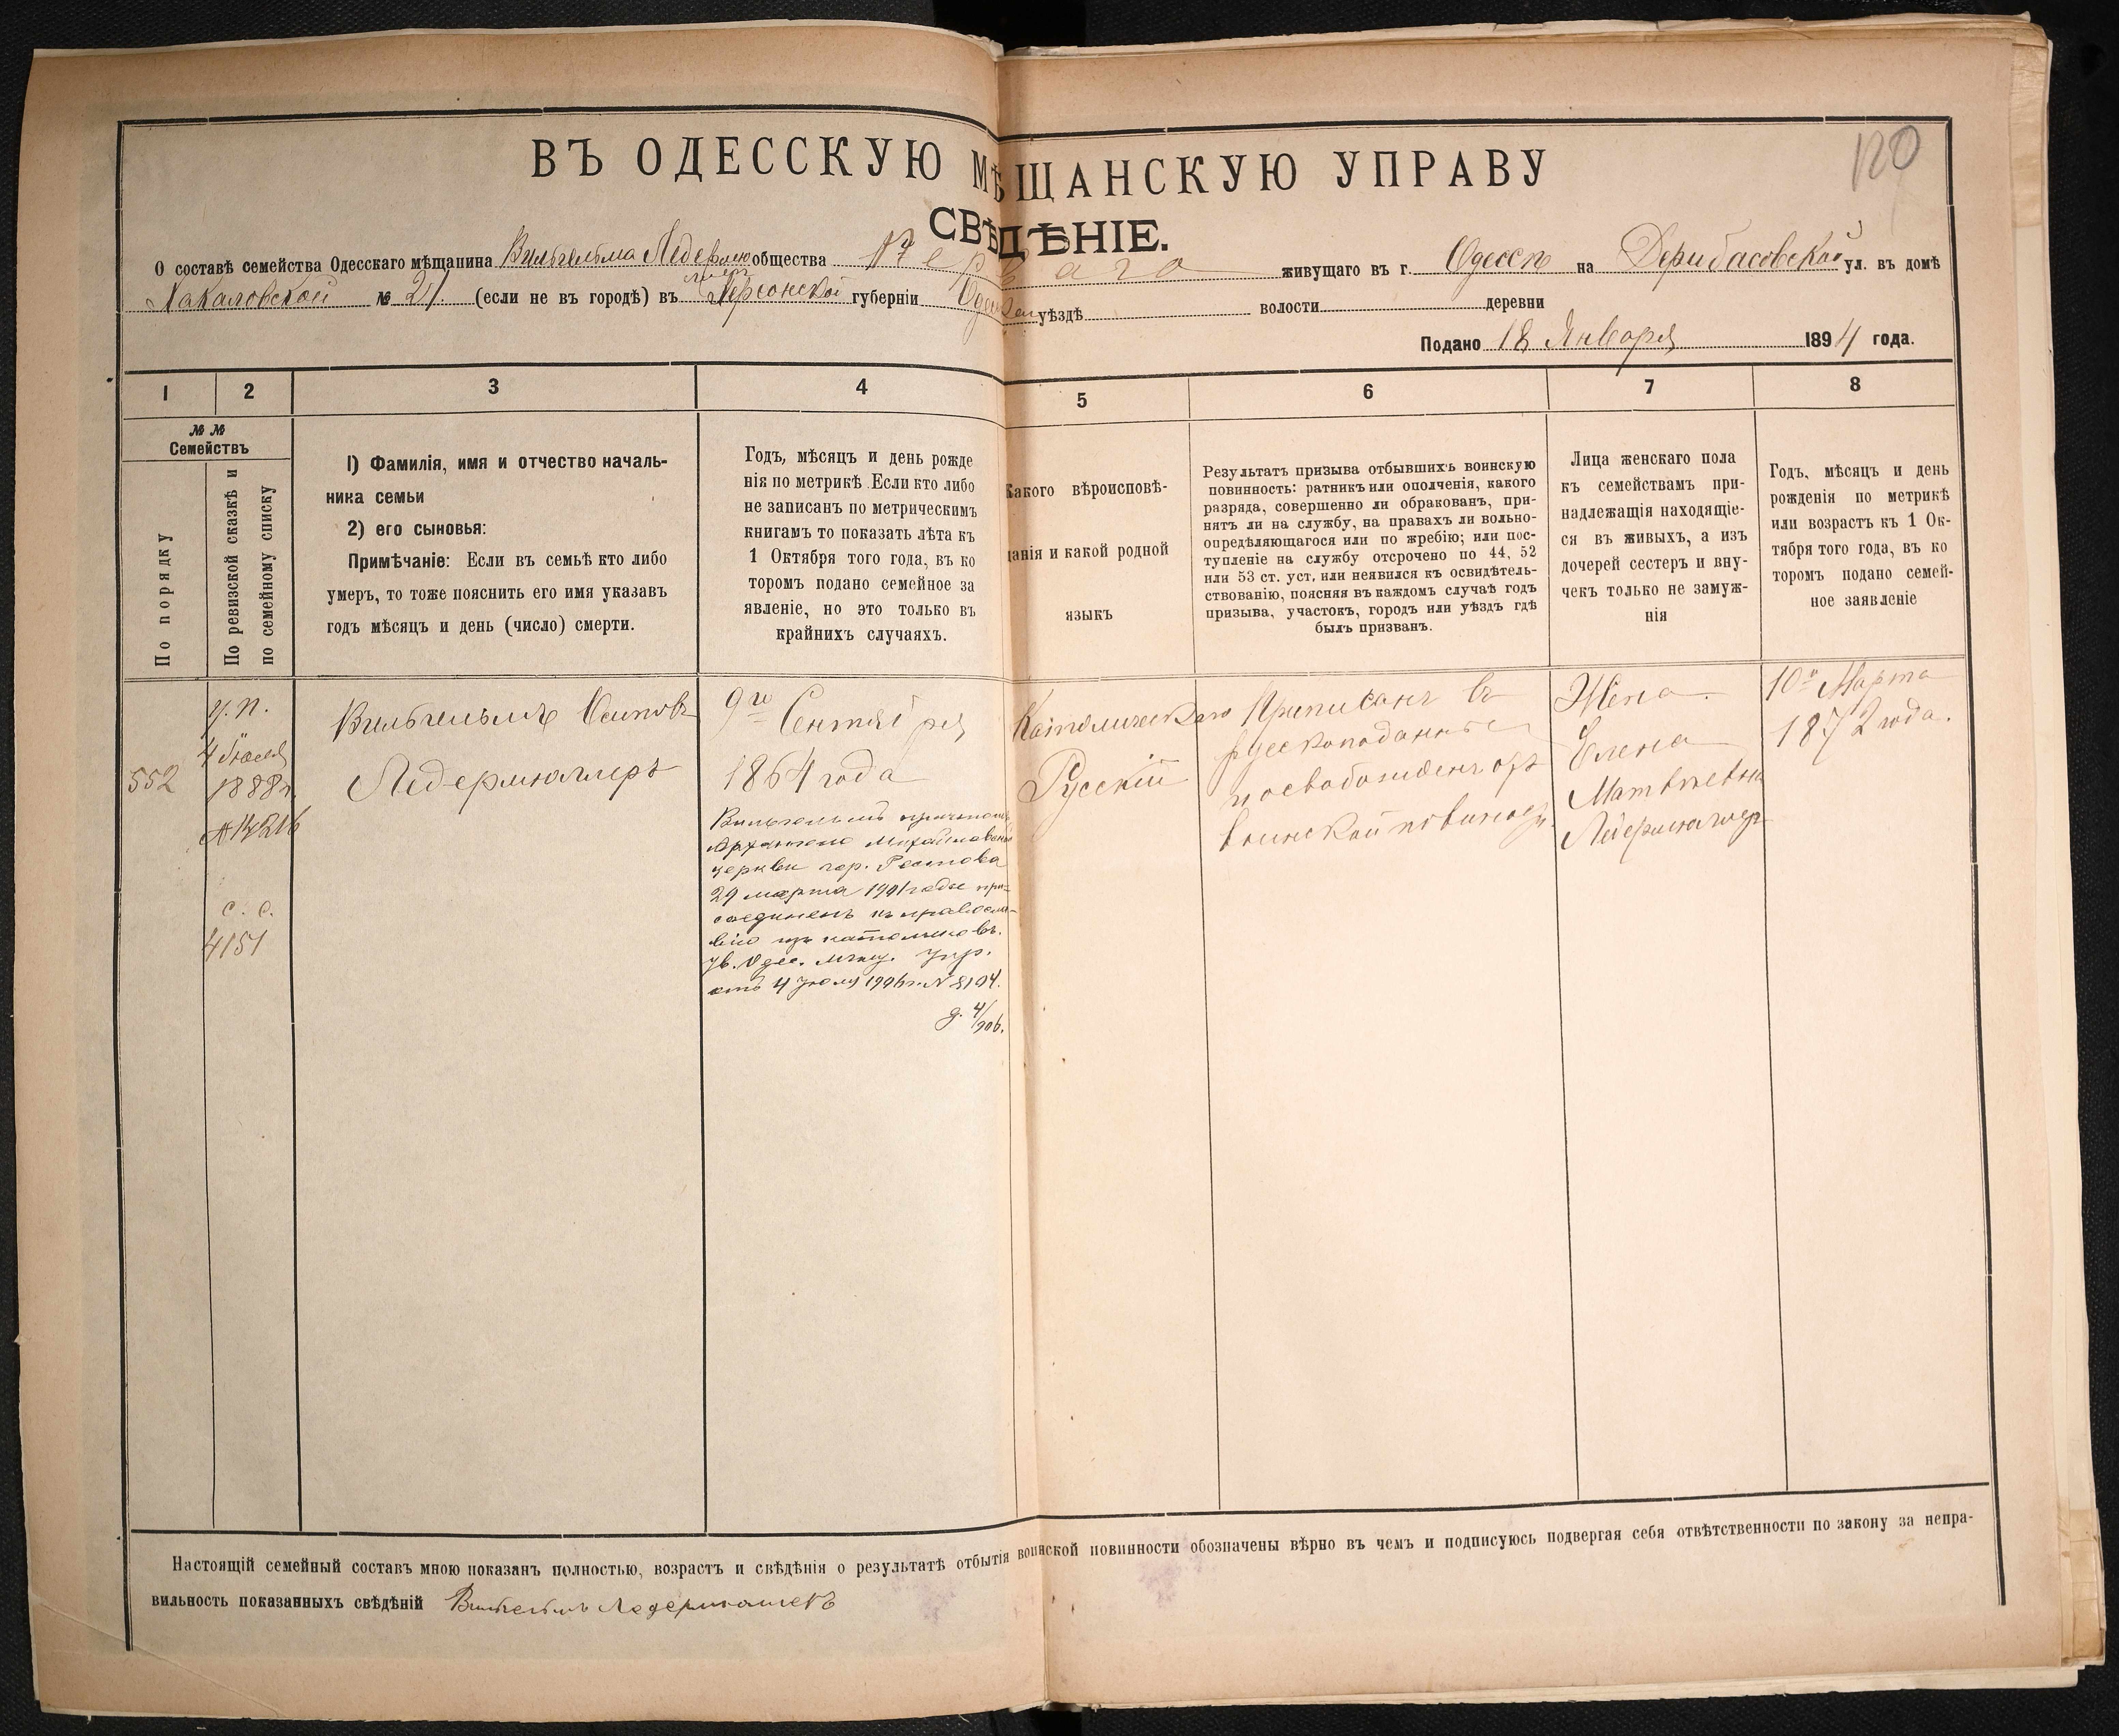 120
ВЪ ОДЕССКУЮ МѢЩАНСКУЮ УПРАВУ
СВѢДѢНІЕ.
О составѣ семейства Одесскаго мѣщанина Вильгельма Ледермюллеръ общества Перваго живущаго въ г. Одессѣ на Дерибасовской ул. въ домѣ
№ 21. (если не въ городѣ) въ Херсонской губерніи уѣздѣ волости деревни
Подано 18 Января 1894 года.
1 2 3 4 5 6 7 8
№ №
Семействъ
По порядку
По ревизской сказкѣ и
по семейному списку
1) Фамилія, имя и отчество началь-
ника семьи
2) его сыновья:
Примѣчаніе: Если въ семьѣ кто либо
умеръ, то тоже пояснить его имя указавъ
годъ мѣсяцъ и день (число) смерти.
Годъ, мѣсяцъ и день рожде
нія по метрикѣ Если кто либо
не записанъ по метрическимъ
книгамъ то показать лѣта къ
1 Октября того года, въ ко
торомъ подано семейное за
явленіе, но это только въ
крайнихъ случаяхъ.
Какого вѣроисповѣ-
данія и какой родной
языкъ
Результатъ призыва отбывшихъ воинскую
повинность: ратникъ или ополченія, какого
разряда, совершенно ли обракованъ, при-
нятъ ли на службу, на правахъ ли вольно-
опредѣляющагося или по жребію; или пос-
тупленіе на службу отсрочено по 44, 52
или 53 ст. уст, или неявился къ освидѣтель-
ствованію, поясняя въ каждомъ случаѣ годъ
призыва, участокъ, городъ или уѣздъ гдѣ
былъ призванъ.
Лица женскаго пола
къ семействамъ при-
надлежащія находящіе-
ся въ живыхъ, а изъ
дочерей сестеръ и вну-
чекъ только не замуж-
нія
Годъ, мѣсяцъ и день
рожденія по метрикѣ
или возрастъ къ 1 Ок-
тября того года, въ ко
торомъ подано семей-
ное заявленіе
552
у. п.
1888 г.
с. с.
4151
Вильгельмъ Осиповъ
Ледермюллеръ
9го Сентября
1864 года
Вильгельмъ причтомъ
Архангело Михайловской
церкви гор. Ростова
29 марта 1901 года при-
соединенъ къ правосла-
вію изъ католиковъ.
ув. Одес. мѣщ. упр.
отъ 4 Іюля 1906 г. № 8194.
4/906.
Католическаго
Русскій
Приписанъ въ
рускоподанные
и освобожденъ отъ
воинской повиност.
Жена
Елена
Матвѣевна
Ледермюллеръ
10го Марта
1872 года.
Настоящій семейный составъ мною показанъ полностью, возрастъ и свѣдѣнія о результатѣ отбытія воинской повинности обозначены вѣрно въ чемъ и подписуюсь подвергая себя отвѣтственности по закону за непра-
вильность показанныхъ свѣдѣній Вильгельмъ Ледермюллеръ